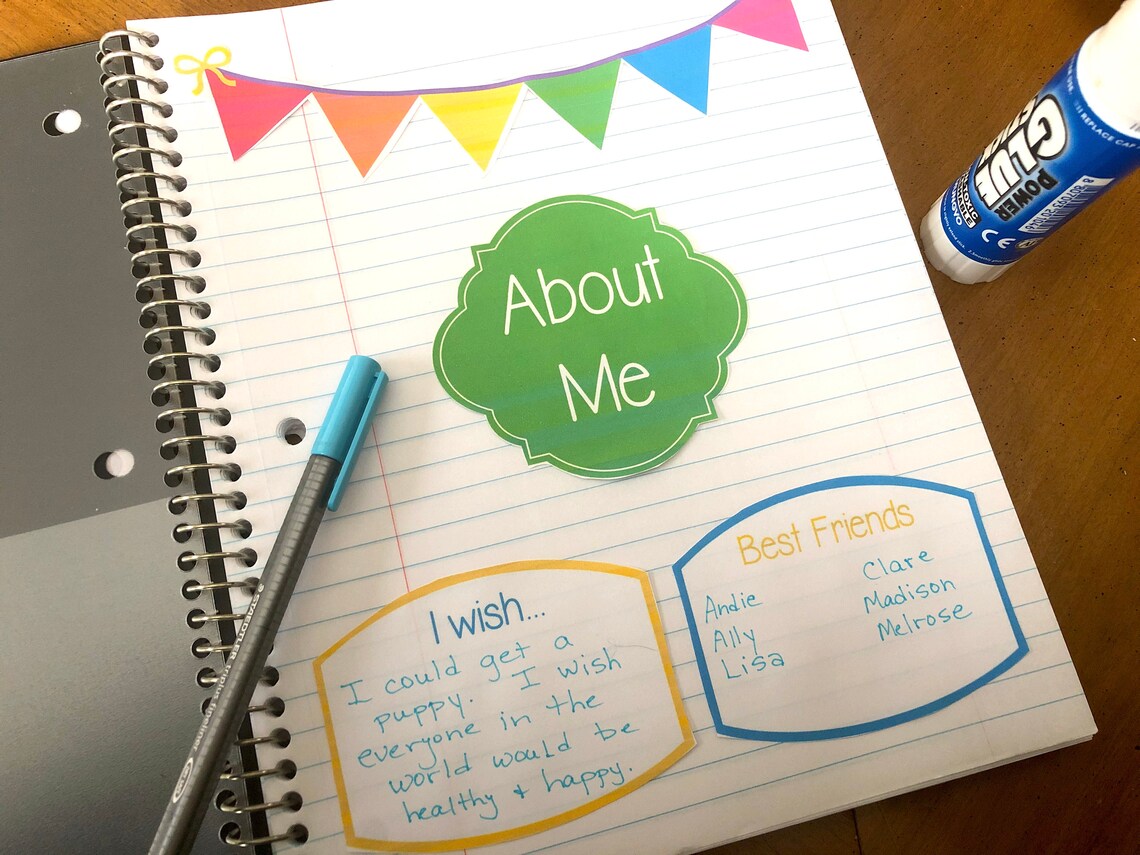 About
Me
I wish...
I could get a
puppy. I wish
everyone in the
world would be
healthy + happy.
Best Friends
Andie
Ally
Lisa
Clare
Madison
Melrose
GLUE
POWER
CE
STAEDTLER triplus fineliner